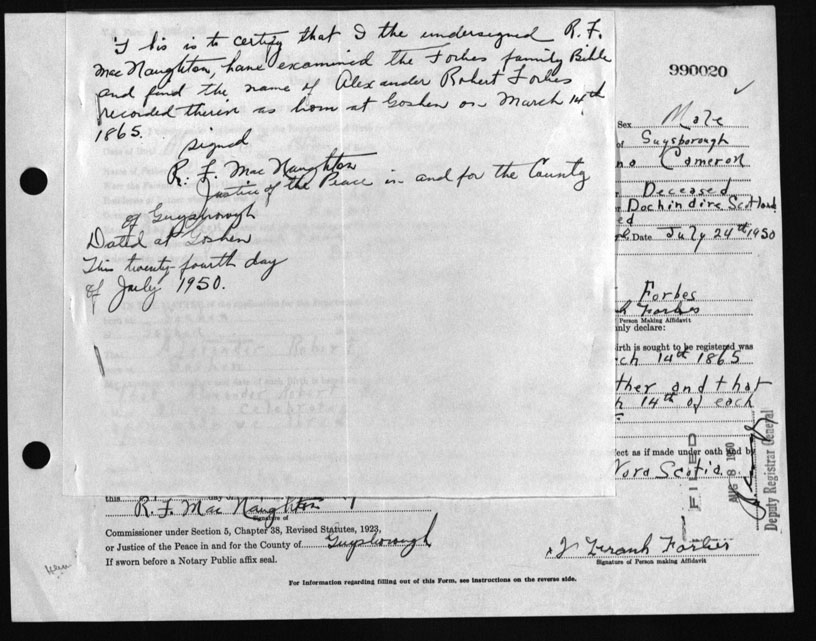 This is to certify that I the undersigned R. F.
MacNaughton, have examined the Forbes family Bible
and find the name of Alexander Robert Forbes
recorded therein as born at Goshen on March 14th
1865.
signed
R. F. MacNaughton
Justice of the Peace in and for the County
of Guysborough
Dated at Goshen
This twenty-fourth day
of July 1950.
990020
Sex Male
of Guysborough
Cameron
Deceased
Dochindire Scotland
ed
Date July 24th 1950
Forbes
Forbes
Person Making Affidavit
nly declare:
irth is sought to be registered was
ch 14th 1865
ther and that
h 14th of each
ect as if made under oath and by
Nova Scotia.
FILED
AUG 8 1950
Deputy Registrar General
this day of
R. F. MacNaughton
Signature of
Commissioner under Section 5, Chapter 38, Revised Statutes, 1923,
or Justice of the Peace in and for the County of Guysborough
If sworn before a Notary Public affix seal.
J Frank Forbes
Signature of Person making Affidavit
For Information regarding filling out of this Form, see instructions on the reverse side.